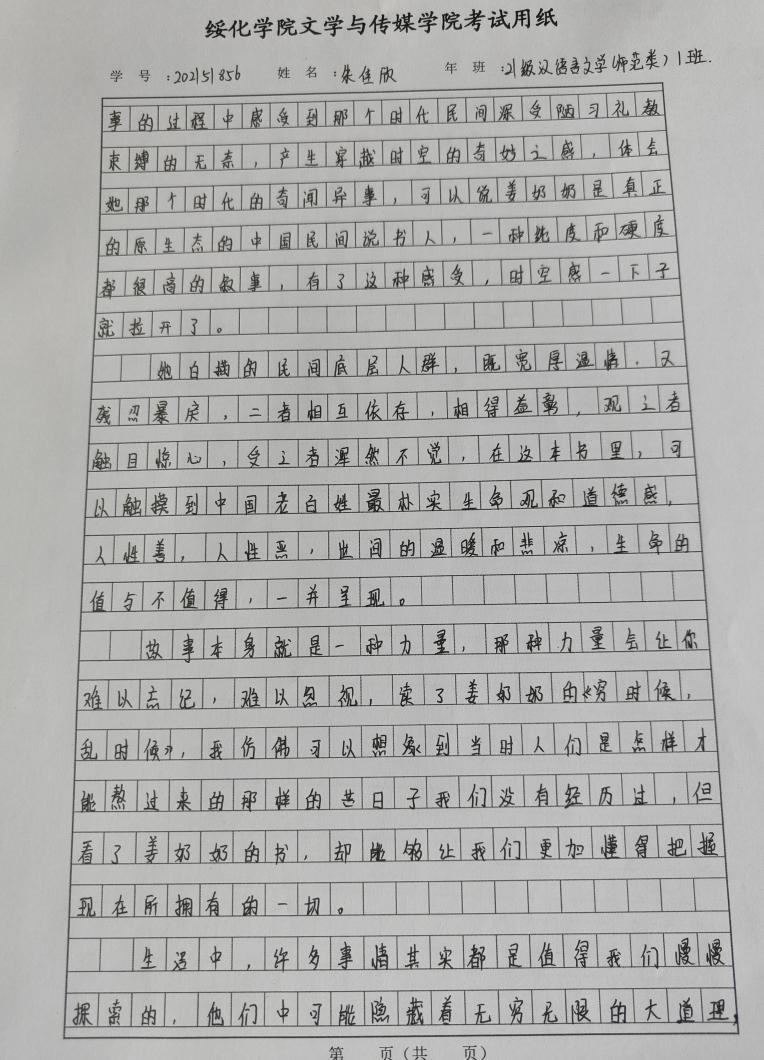 绥化学院文学与传媒学院考试用纸
学 号 :202151856 姓 名 :朱佳欣 年 班 :21级汉语言文学(师范类)1班.
事的过程中感受到那个时代民间深受陋习礼教
束缚的无奈，产生穿越时空的奇妙之感，体会
她那个时代的奇闻异事，可以说姜奶奶是真正
的原生态的中国民间说书人，一种纯度和硬度
都很高的叙事，有了这种感受，时空感一下子
就拉开了。
她白描的民间底层人群，既宽厚温情，又
残忍暴戾，二者相互依存，相得益彰，观之者
触目惊心，受之者浑然不觉，在这本书里，可
以触摸到中国老百姓最朴实生命观和道德感，
人性善，人性恶，世间的温暖和悲凉，生命的
值与不值得，一并呈现。
故事本身就是一种力量，那种力量会让你
难以忘记，难以忽视，读了姜奶奶的《穷时候，
乱时候》，我仿佛可以想象到当时人们是怎样才
能熬过来的那样的苦日子我们没有经历过，但
看了姜奶奶的书，却能够让我们更加懂得把握
现在所拥有的一切。
生活中，许多事情其实都是值得我们慢慢
探索的，他们中可能隐藏着无穷无限的大道理，
第 页（共 页）